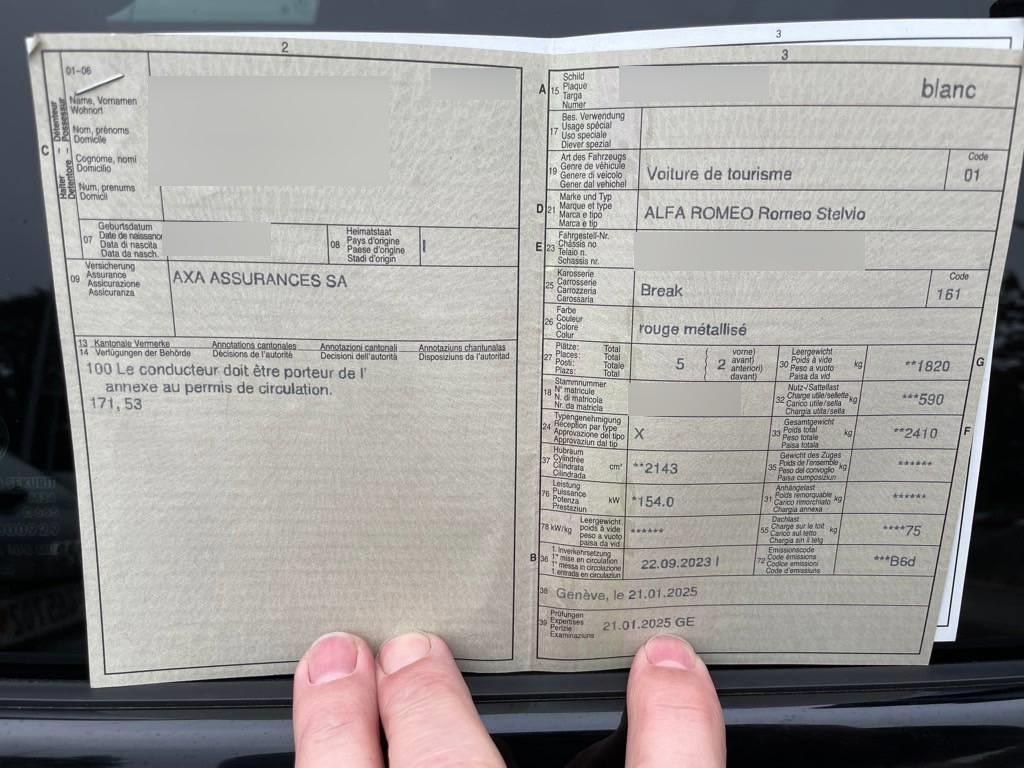 2
01-06
Name, Vornamen
Wohnort
Nom, prénoms
Domicile
Cognome, nomi
Domicilio
Num, prenums
Domicil
C
Halter – Détenteur
Detentore – Possessur
07
Geburtsdatum
Date de naissance
Data di nascita
Data da nasch.
08
Heimatstaat
Pays d'origine
Paese d'origine
Stadi d'origin
09
Versicherung
Assurance
Assicurazione
Assicuranza
AXA ASSURANCES SA
13 Kantonale Vermerke Annotations cantonales Annotazioni cantonali Annotaziuns chantunalas
14 Verfügungen der Behörde Décisions de l'autorité Decisioni dell'autorità Disposiziuns da l'autoritad
100 Le conducteur doit être porteur de l'
annexe au permis de circulation.
171, 53
3
3
A 15
Schild
Plaque
Targa
Numer
blanc
17
Bes. Verwendung
Usage spécial
Uso speciale
Diever spezial
19
Art des Fahrzeugs
Genre de véhicule
Genere di veicolo
Gener dal vehichel
Voiture de tourisme
Code
01
D 21
Marke und Typ
Marque et type
Marca e tipo
Marca e tip
ALFA ROMEO Romeo Stelvio
E 23
Fahrgestell-Nr.
Châssis no
Telaio n.
Schassis nr.
25
Karosserie
Carrosserie
Carrozzeria
Carossaria
Break
Code
161
26
Farbe
Couleur
Colore
Colur
rouge métallisé
27
Plätze: Total
Places: Total
Posti: Totale
Plazs: Total
5
2
vorne)
avant)
anteriori)
davant)
30
Leergewicht
Poids à vide
Peso a vuoto
Paisa da vid
kg
**1820
G
18
Stammnummer
N° matricule
N. di matricola
Nr. da matricla
32
Nutz-/Sattellast
Charge utile/sellette
Carico utile/sella
Chargia utila/sella
kg
***590
24
Typengenehmigung
Réception par type
Approvazione del tipo
Approvaziun dal tip
X
33
Gesamtgewicht
Poids total
Peso totale
Paisa totala
kg
**2410
F
37
Hubraum
Cylindrée
Cilindrata
Cilindrada
cm³
**2143
35
Gewicht des Zuges
Poids de l'ensemble
Peso del convoglio
Paisa cumposiziun
kg
******
76
Leistung
Puissance
Potenza
Prestaziun
kW
*154.0
31
Anhängelast
Poids remorquable
Carico rimorchiato
Chargia annexa
kg
******
78 kW/kg
Leergewicht
poids à vide
peso a vuoto
paisa da vid
******
55
Dachlast
Charge sur le toit
Carico sul tetto
Chargia sin il tetg
kg
****75
B 36
1. Inverkehrsetzung
1re mise en circulation
1a messa in circolazione
1. entrada en circulaziun
22.09.2023 I
72
Emissionscode
Code émissions
Codice emissioni
Code d'emissiuns
***B6d
38
Genève, le 21.01.2025
39
Prüfungen
Expertises
Perizie
Examinaziuns
21.01.2025 GE